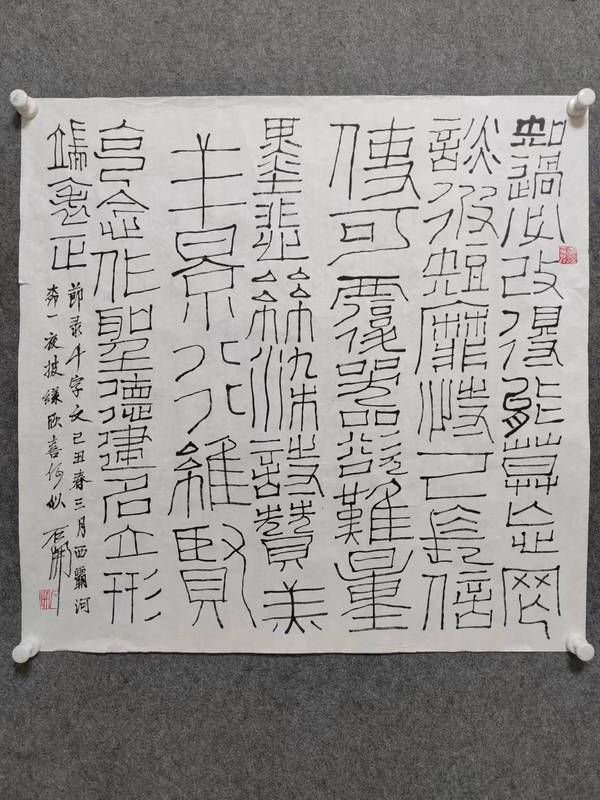 知過必改得能莫忘罔
談彼短靡恃己長信
使可覆器欲難量
墨悲絲染詩讚羔
羊景行維賢
克念作聖德建名立形
端表正
節录千字文己丑春三月西霸河
一夜披喜何似